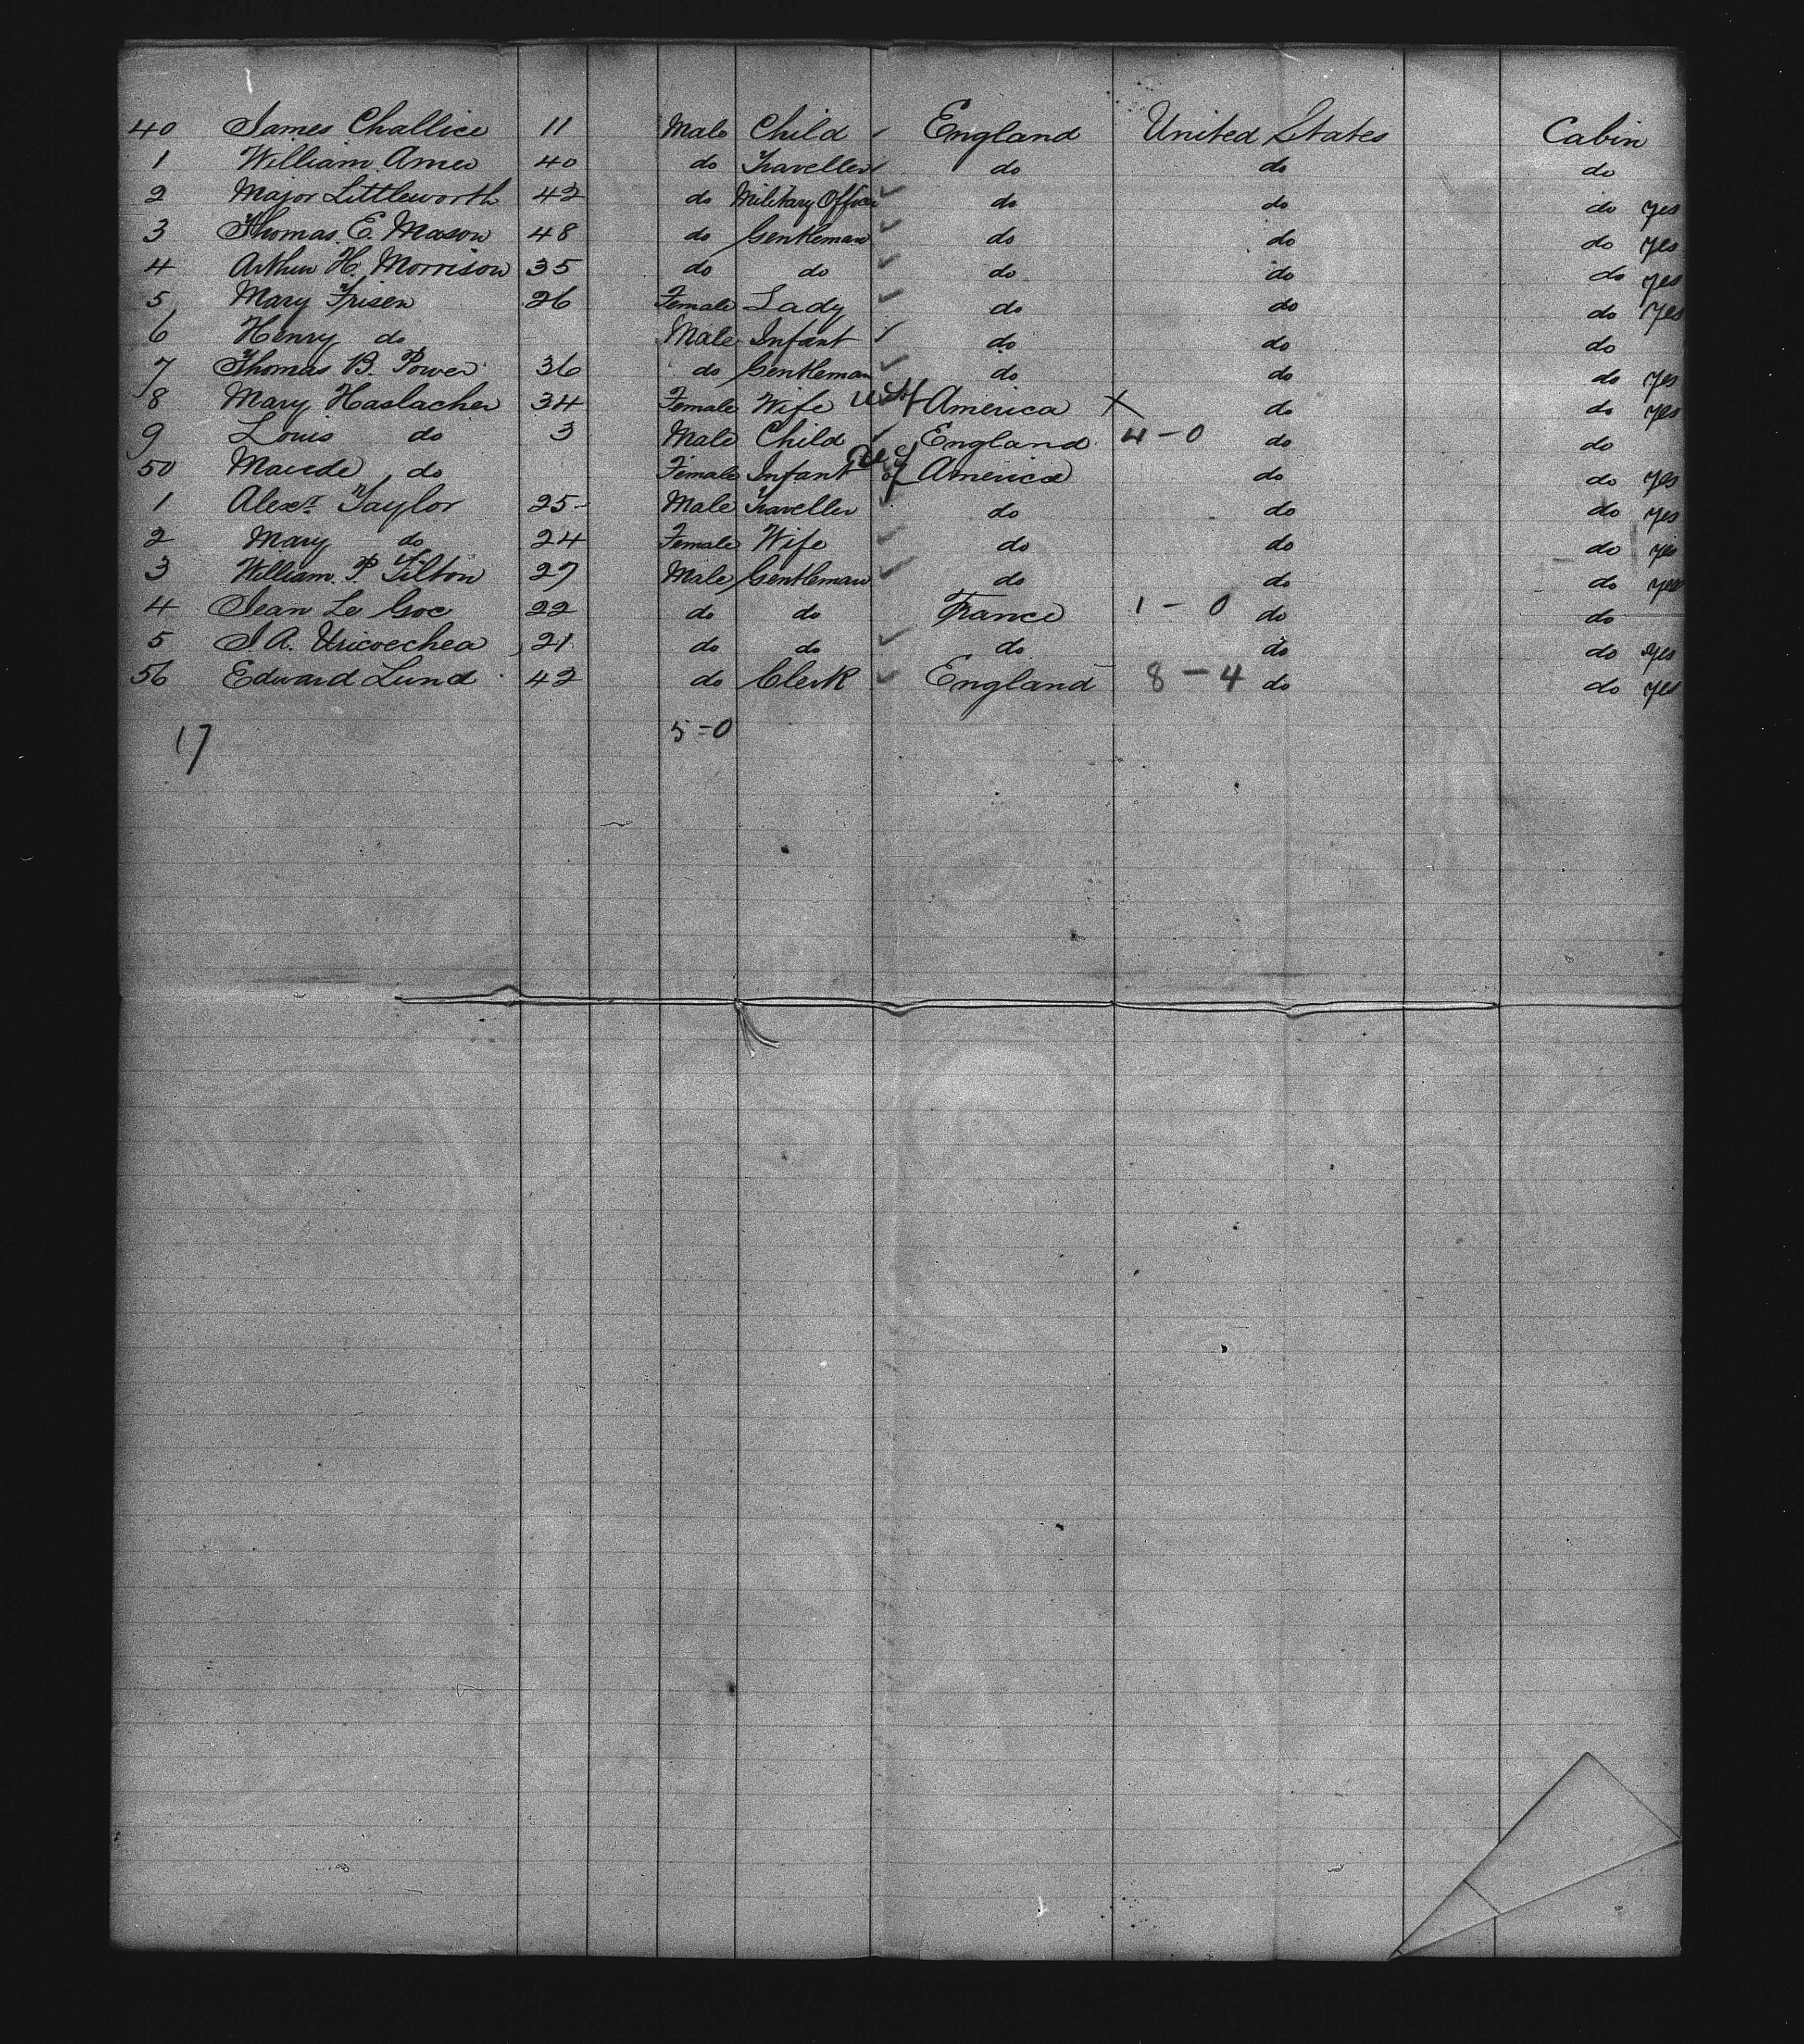 40 James Challice 11 Male Child England United States Cabin
1 William Amer 40 do Traveller do do do
2 Major Littleworth 42 do Military Officer do do do yes
3 Thomas E. Mason 48 do Gentleman do do do yes
4 Arthur H. Morrison 35 do do do do do yes
5 Mary Frisen 26 Female Lady do do do yes
6 Henry do Male Infant do do do
7 Thomas B. Power 36 do Gentleman do do do yes
8 Mary Haslacher 34 Female Wife America X do do yes
9 Louis do 3 Male Child England 4-0 do do
50 do Female Infant of America do do yes
1 Alexr Taylor 25 Male Traveller do do do yes
2 Mary do 24 Female Wife do do do yes
3 William P. Tilton 27 Male Gentleman do do do yes
4 Jean Le Goc 22 do do France 1-0 do do
5 J A. Uricoechea 21 do do do do do yes
56 Edward Lund 42 do Clerk England 8-4 do do yes
17 5=0